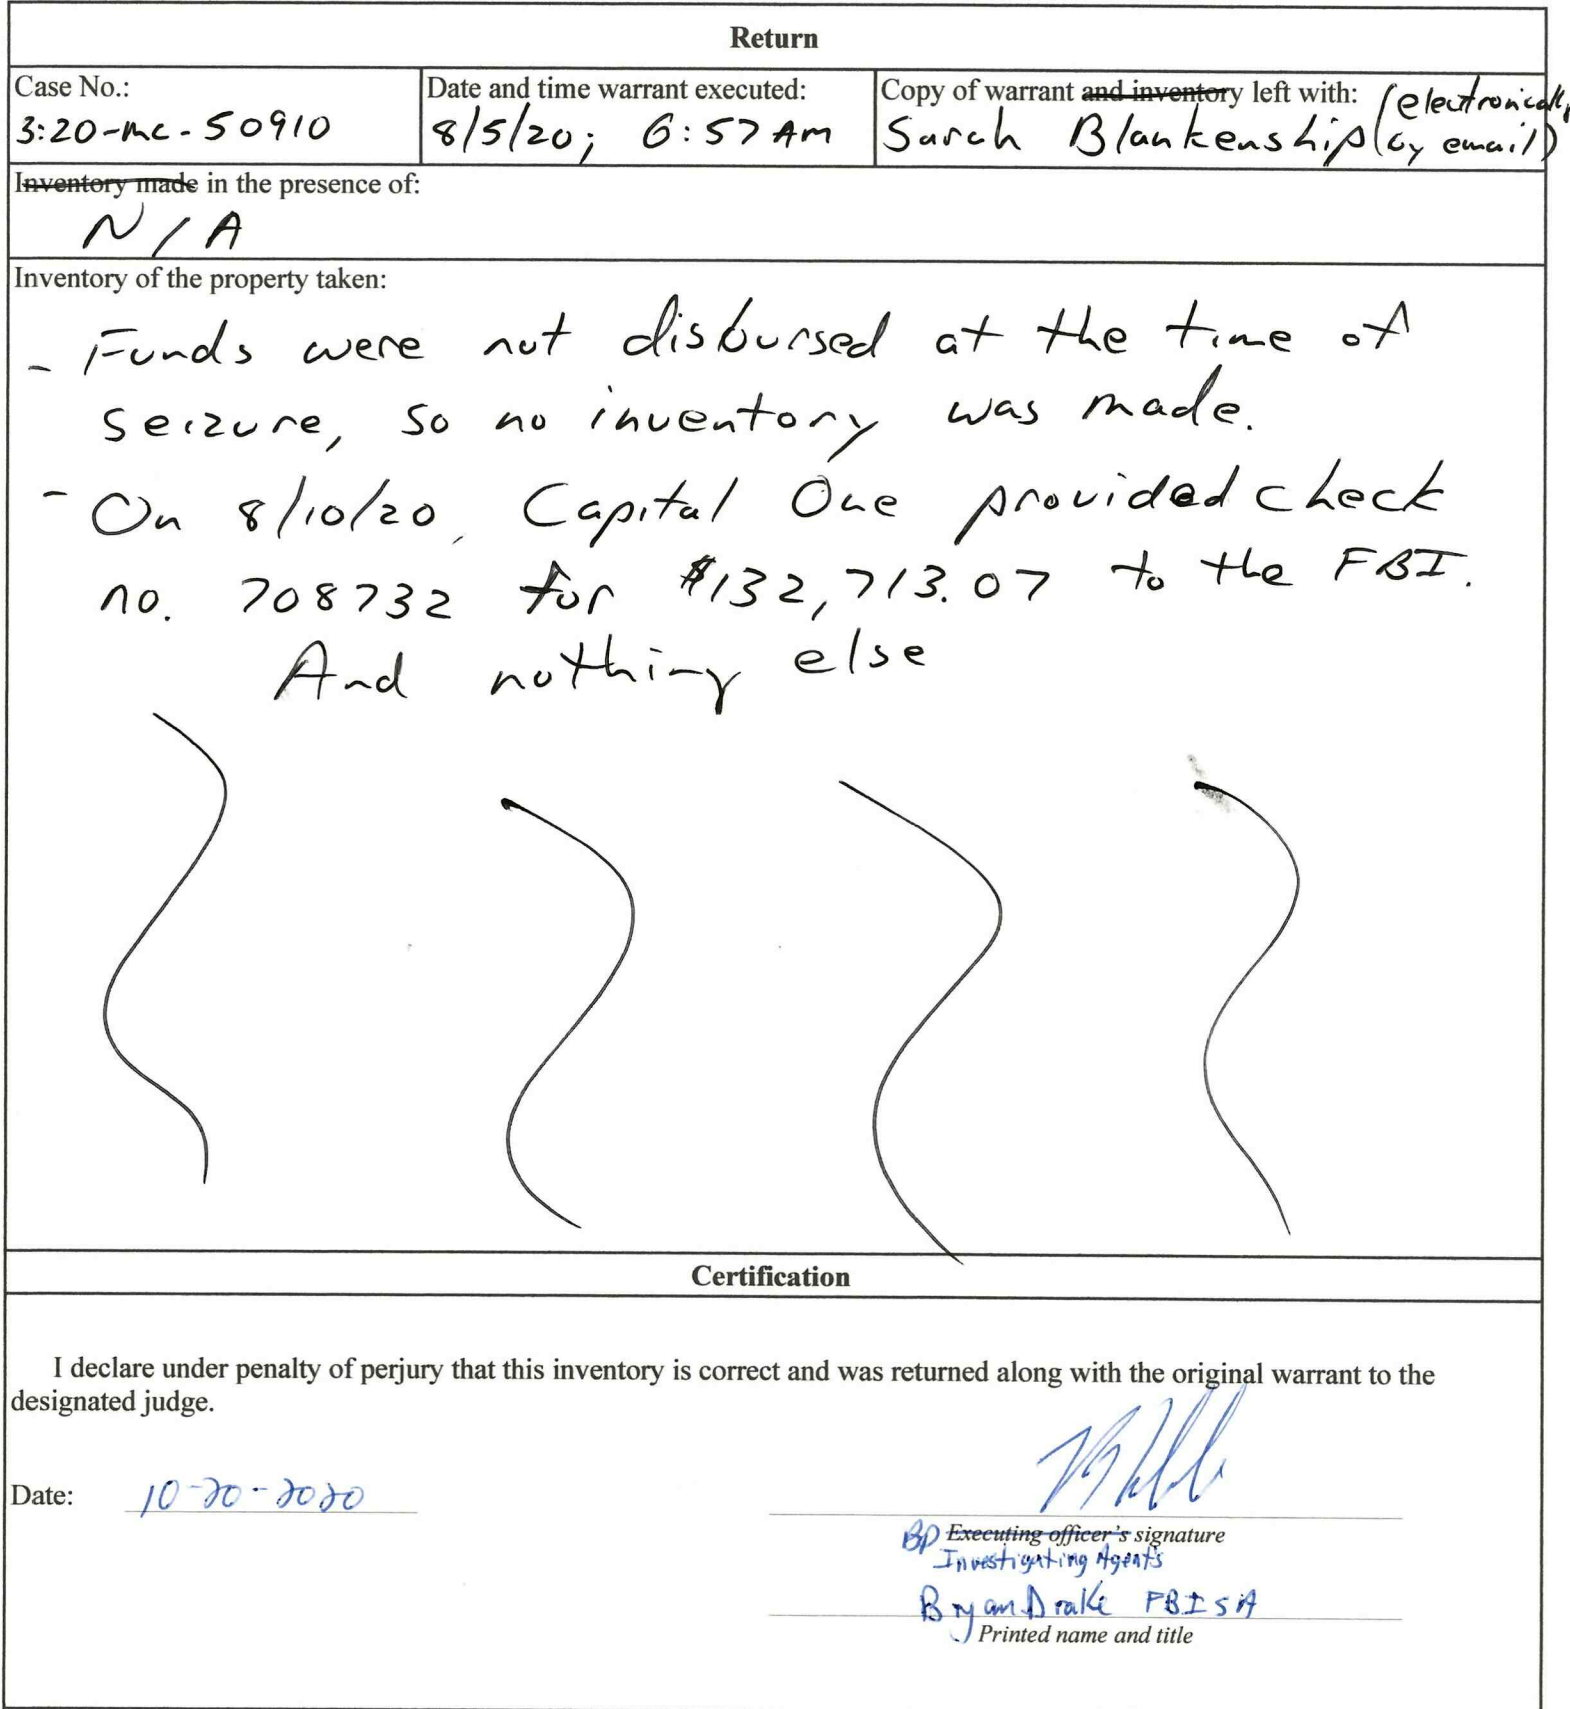 Return
Case No.:
3:20-mc-50910
Date and time warrant executed:
8/5/20; 6:57 AM
Copy of warrant and inventory left with: (electronically
Sarah Blankenship by email)
Inventory made in the presence of:
N/A
Inventory of the property taken:
- Funds were not disbursed at the time of
seizure, so no inventory was made.
- On 8/10/20, Capital One provided check
no. 708732 for $132,713.07 to the FBI.
And nothing else
Certification
I declare under penalty of perjury that this inventory is correct and was returned along with the original warrant to the
designated judge.
Date: 10-20-2020
BD Executing officer's signature
Investigating Agent's
Bryan Drake FBI SA
Printed name and title